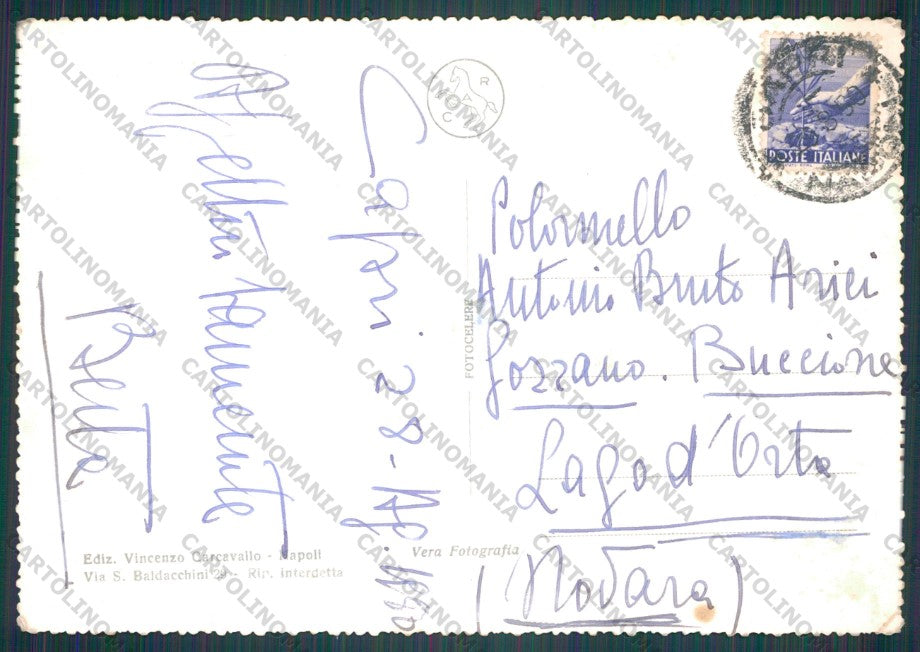 Capri 28-Ag. 1950
Affettuosamente
Berta
R
A
C
POSTE ITALIANE
Antonio Bruto Arici
Gozzano. Buccione
Lago d'Orta
(Novara)
FOTOCELERE
Ediz. Vincenzo Carcavallo - Napoli
Via S. Baldacchini 29 - Rip. interdetta
Vera Fotografia
CARTOLINOMANIA